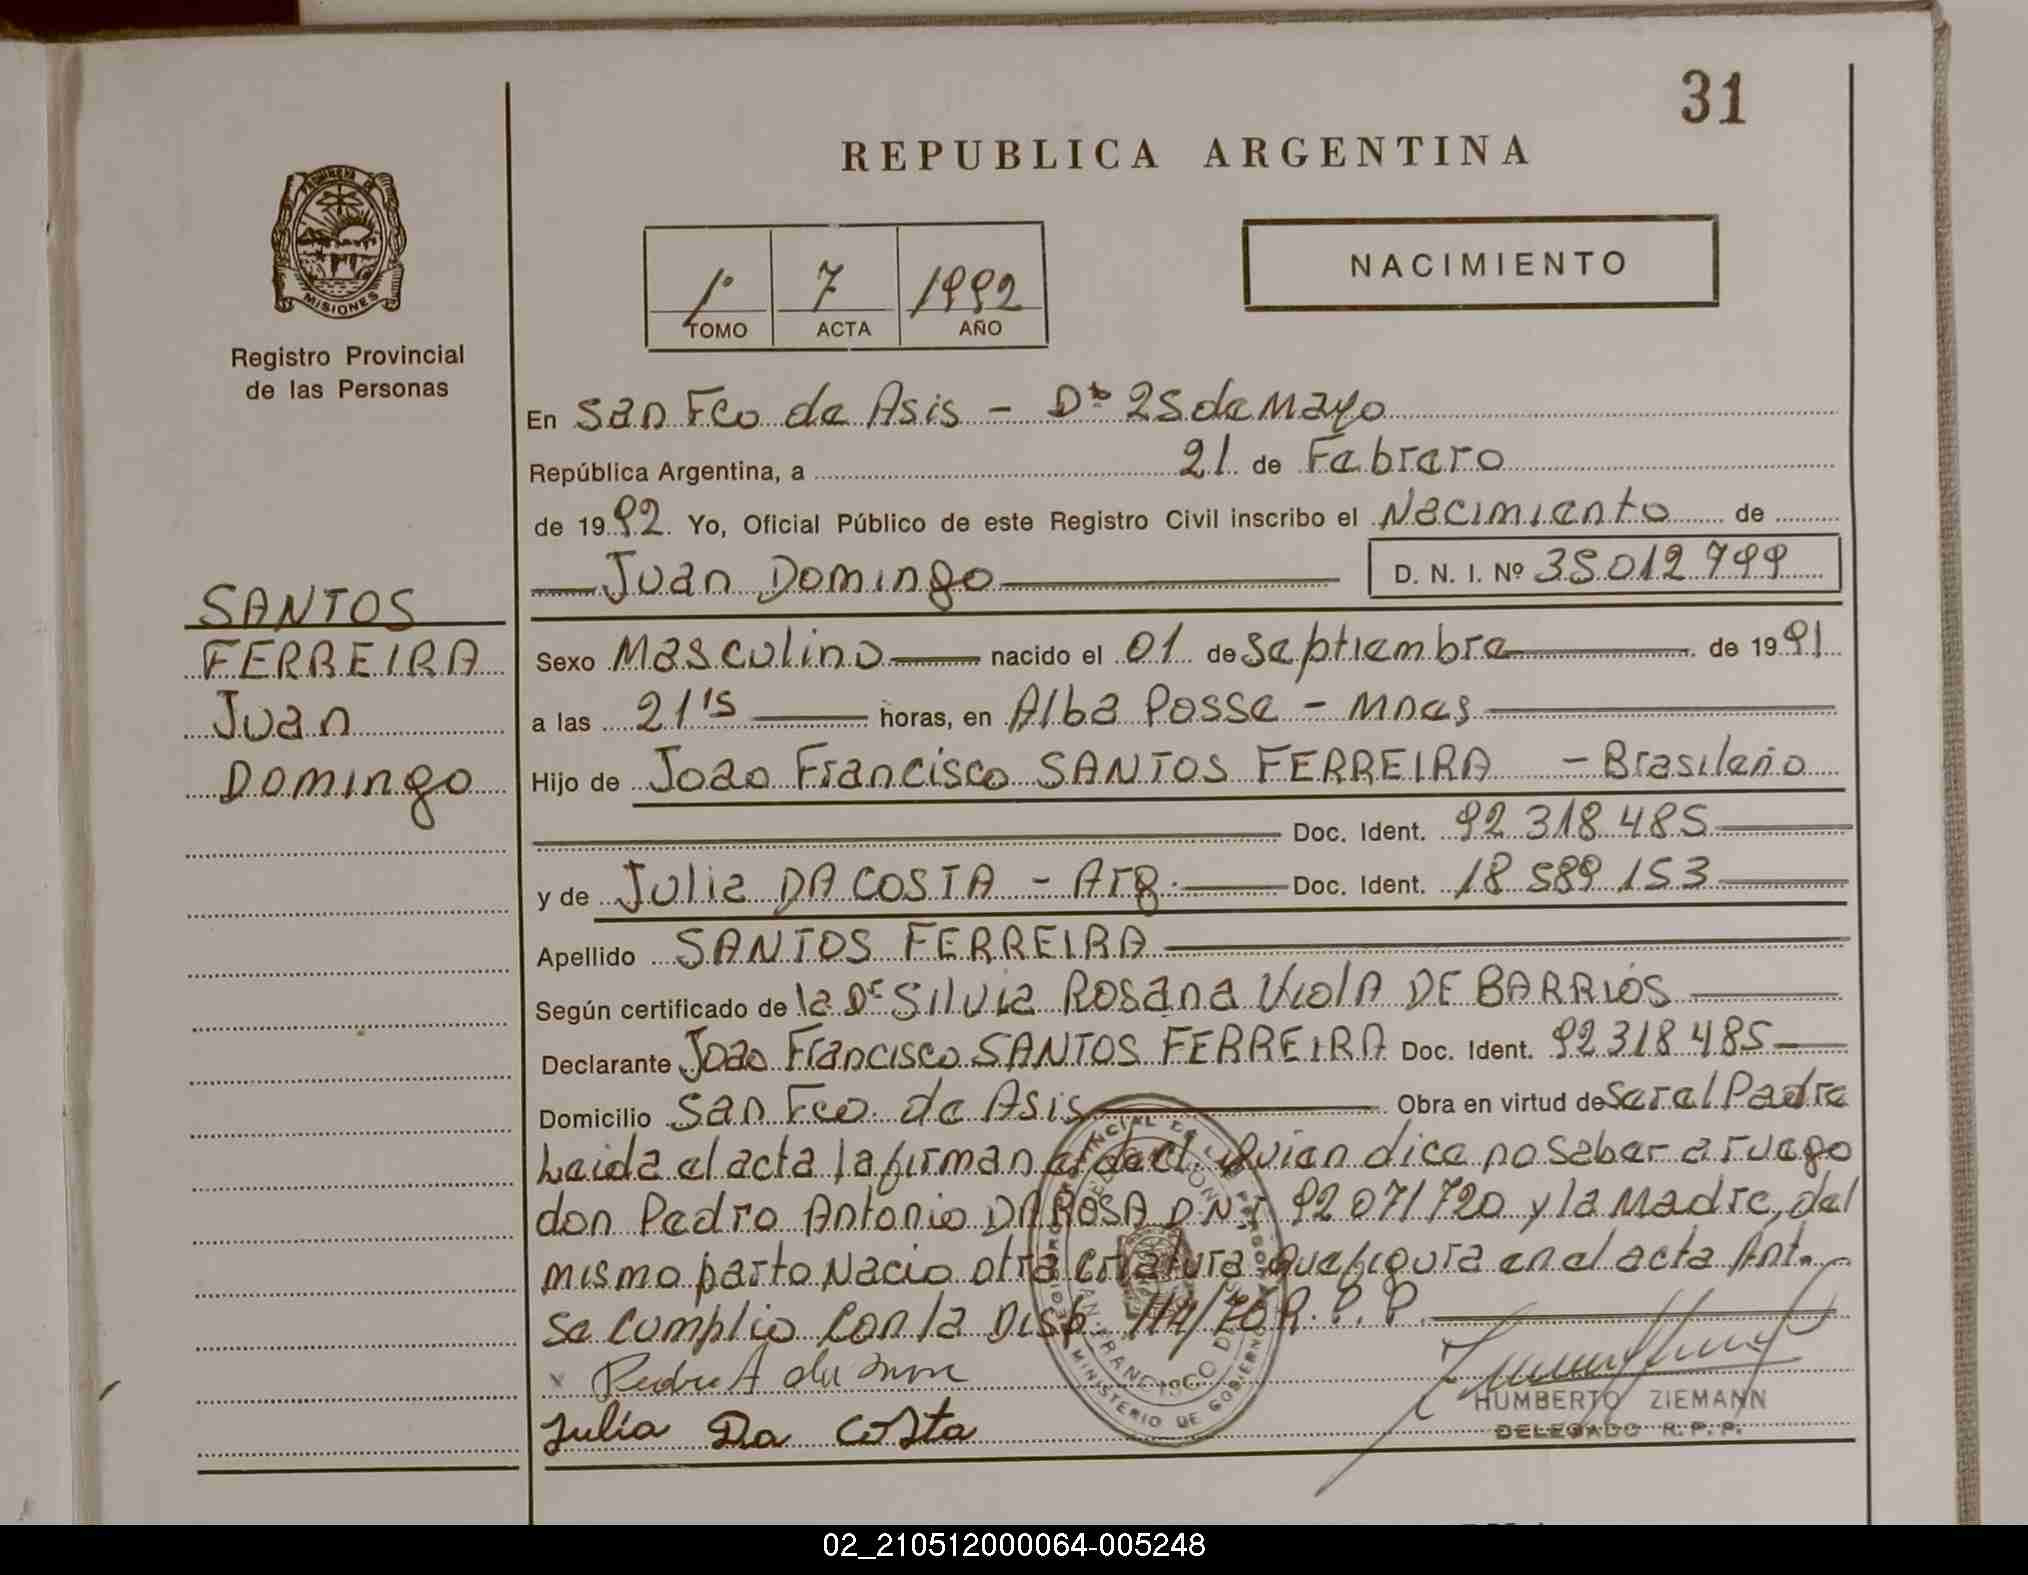 31
REPUBLICA ARGENTINA
PROVINCIA DE
MISIONES
Registro Provincial
de las Personas
1º 7 1992
TOMO ACTA AÑO
NACIMIENTO
En San Fco de Asis - Dto 25 de Mayo
República Argentina, a 21 de Febrero
de 1992. Yo, Oficial Público de este Registro Civil inscribo el Nacimiento de
Juan Domingo D. N. I. Nº 35.012.799
SANTOS
FERREIRA
Juan
Domingo
Sexo Masculino nacido el 01 de Septiembre de 1991
a las 21'15 horas, en Alba Posse - Mnes
Hijo de Joao Francisco SANTOS FERREIRA - Brasileño
Doc. Ident. 92 318 485
y de Julia DA COSTA - Arg. Doc. Ident. 18 589 153
Apellido SANTOS FERREIRA
Según certificado de la Dr Silvia Rosana Viola DE BARRIOS
Declarante Joao Francisco SANTOS FERREIRA Doc. Ident. 92 318 485
Domicilio San Fco. de Asis Obra en virtud de ser el Padre
Leida el acta la firman el decl. Quien dice no saber a ruego
don Pedro Antonio DA ROSA DNI 92 071 720 y la Madre, del
mismo parto Nacio otra criatura que figura en el acta Ant.
Se Cumplio con la Disp. 114/76 R.P.P.
Pedro A da
Julia Da Costa
HUMBERTO ZIEMANN
DELEGADO R.P.P.
MINISTERIO DE GOBIERNO
SAN FRANCISCO DE
02_210512000064-005248